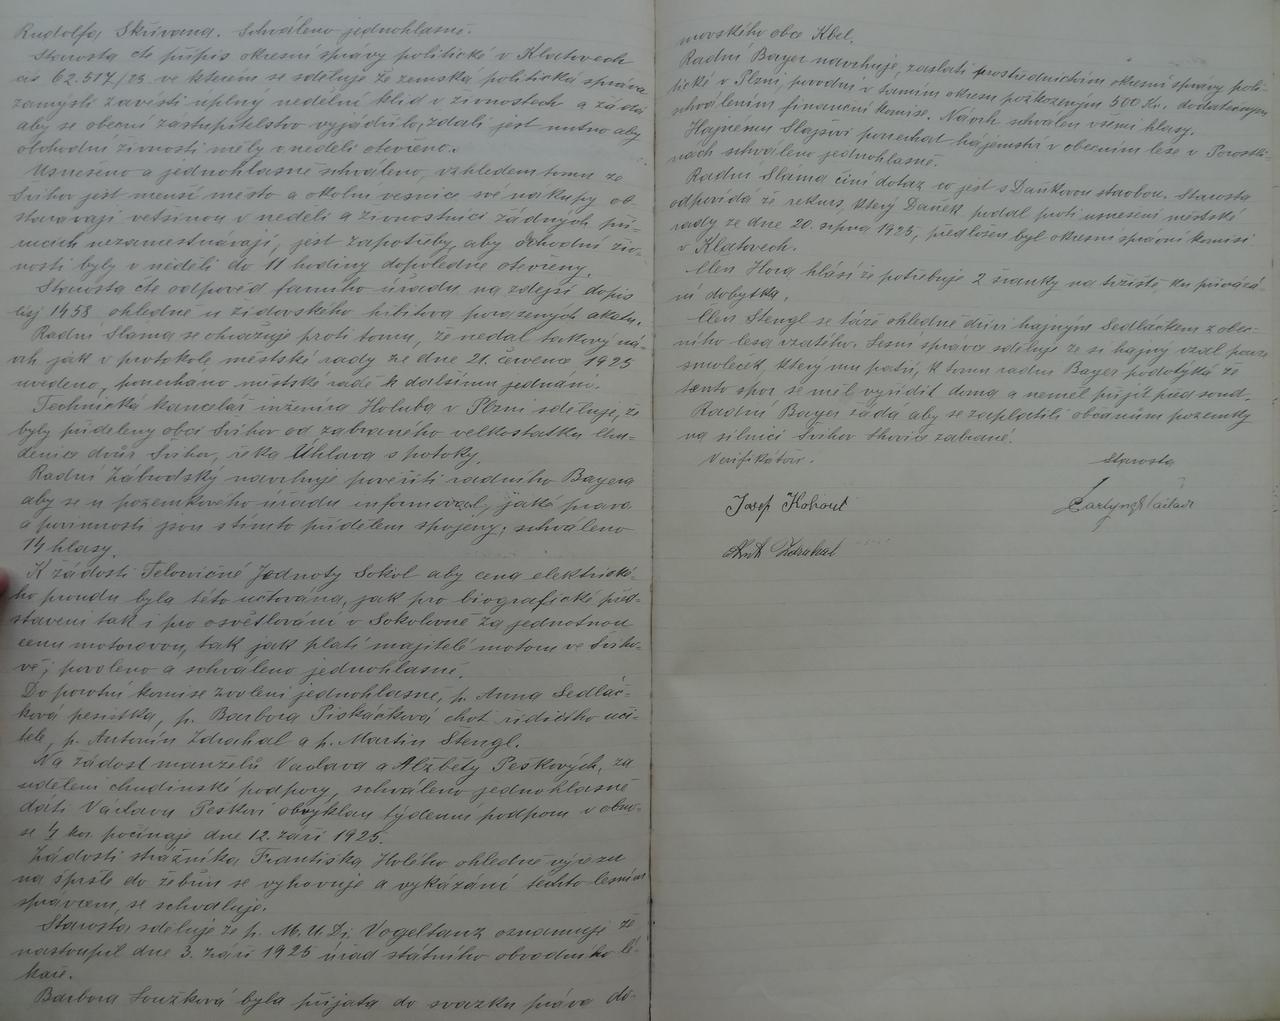 Rudolfa Skřivana. Schváleno jednohlasně.
Starosta čte přípis okresní správy politické v Klatovech
čís 62.517/23. ve kterém se sděluje že zemská politická správa
zamýšlí zavésti úplný nedělní klid v živnostech a žádá
aby se obecní zastupitelstvo vyjádřilo, zdali jest nutno aby
obchodní živnosti měly v neděli otevřeno.
Usneseno a jednohlasně schváleno, vzhledem tomu že
Švihov jest menší město a okolní vesnice své nákupy ob-
starávají většinou v neděli a živnostníci žádných
nezaměstnávají, jest zapotřeby, aby obchodní živ-
nosti byly v neděli do 11 hodiny dopoledne otevřeny.
Starosta čte odpověď farního úřadu na zdejší dopis
čísj 1458 ohledně u židovského hřbitova poražených akátů.
Radní Sláma se ohražuje proti tomu, že nedal takový ná-
vrh jak v protokole městské rady ze dne 21. července 1925
uvedeno, ponecháno městské radě k dalšímu jednání.
Technická kancelář inženýra Holuba v Plzni sděluje, že
byly přiděleny obci Švihov od zabraného velkostatku Chu-
denice dvůr Švihov, řeka Úhlava s potoky.
Radní Zábrodský navrhuje pověřiti radního Bayera
aby se u pozemkového úřadu informoval, jaké práva
a povinnosti jsou s tímto přídělem spojeny, schváleno
14 hlasy.
K žádosti Tělocvičné Jednoty Sokol aby cena elektrické-
ho proudu byla této účtována, jak pro biografické před-
stavení tak i pro osvětlování v Sokolovně za jednotnou
cenu motorovou, tak jak platí majitelé motorů ve Šviho-
vě, povoleno a schváleno jednohlasně.
Do porotní komise zvoleni jednohlasně, p. Anna Sedláč-
ková, p. Barbora Piskáčková choť řídícího uči-
tele, p. Antonín Zdrahal a p. Martin Štengl.
Na žádost manželů Václava a Alžběty Peškových, za
udělení chudinské podpory, schváleno jednohlasně
dáti Václavu Peškovi obvyklou týdenní podporu v obno-
se 4 kor. počínaje dne 12. září 1925.
Žádosti strážníka Františka Holého ohledně
na do žebřin se vyhovuje a vykázání těchto lesním
správcem, se schvaluje.
Starosta sděluje že p. M.U.Dr. Vogeltanz oznamuje že
nastoupil dne 3. září 1925 úřad státního obvodního lé-
kaře.
Barbora Součková byla přijata do svazku práva do-
movského obce Kbel.
Radní Bayer navrhuje, zaslati prostřednictvím okresní správy poli-
tické v Plzni, povodní v tamím okresu poškozeným 500 Kč. dodatečným
schválením finanční komise. Návrh schválen všemi hlasy.
Hajnému Slajsovi ponechat hájemství v obecním lese v
nách schváleno jednohlasně.
Radní Sláma činí dotaz co jest s Daňkovou stavbou. Starosta
odpovídá že rekurs, který Daněk podal proti usnesení městské
rady ze dne 20. srpna 1925, předložen byl okresní správní komisi
v Klatovech.
Člen Hora hlásí že potřebuje 2 šranky na tržiště, ku přivázá-
ní dobytka.
Člen Štengl se táže ohledně dříví hajným Sedláčkem z obec-
ního lesa vzatého. Lesní správce sděluje že si hajný vzal pouze
smoleček, který mu patří, k tomu radní Bayer podotýká že
tento spor se měl vyřídit doma a neměl přijít před soud.
Radní Bayer žádá aby se zaplatili občanům pozemky
na silnici Švihov Skočice zabrané.
Verifikátoři.
Starosta
Josef Kohout
Ant. Zdrahal